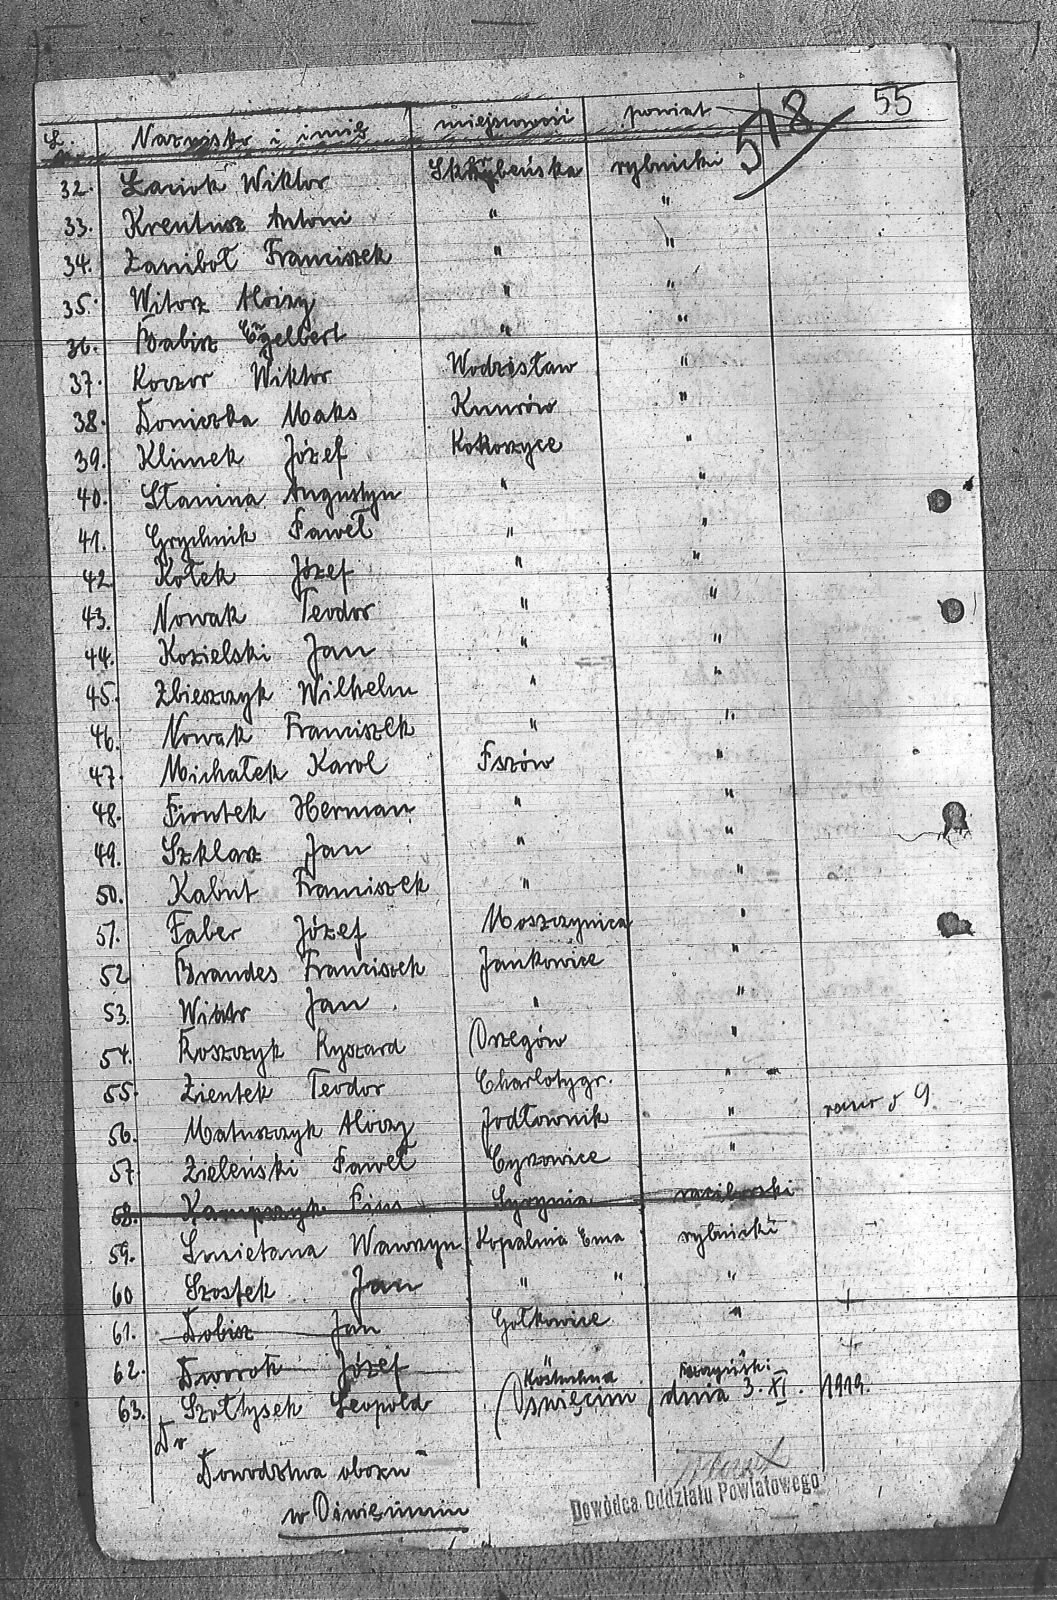 55
518
L. Nazwisko i imię miejscowość powiat
32. Łaciok Wiktor Skrzbeńska rybnicki
33. Kreutusz Antoni " "
34. Żaniboł Franciszek " "
35. Witosz Alojzy " "
36. Babisz Engelbert " "
37. Koczor Wiktor Wodzisław "
38. Doniczka Maks Knurów "
39. Klimek Józef Kokoszyce "
40. Stanina Augustyn " "
41. Grychnik Paweł " "
42. Kołek Józef " "
43. Nowak Teodor " "
44. Kozielski Jan " "
45. Zbieszczyk Wilhelm " "
46. Nowak Franciszek " "
47. Michałek Karol Pszów "
48. Piontek Herman " "
49. Szklarz Jan " "
50. Kabut Franciszek " "
51. Faber Józef Moszczynica "
52. Brandes Franciszek Jankowice "
53. Wiatr Jan " "
54. Roszczyk Ryszard Orzegów "
55. Zientek Teodor Charlotygr. "
56. Matuszczyk Alojzy Jodłownik "
57. Zieleński Paweł Cyrzowice "
58. Pius Syrynia raciborski
59. Smietana Wawrzyn Kopalnia Ema rybnicki
60 Szostek Jan " " "
61. Dobisz Jan Gołkowice " +
62. Dworok Józef Kostuchna Pszczyński +
63. Szołtysek Leopold Oświęcim dnia 3. XI. 1919.
Do
Dowództwa obozu
w Oświęcimiu
Dowódca Oddziału Powiatowego